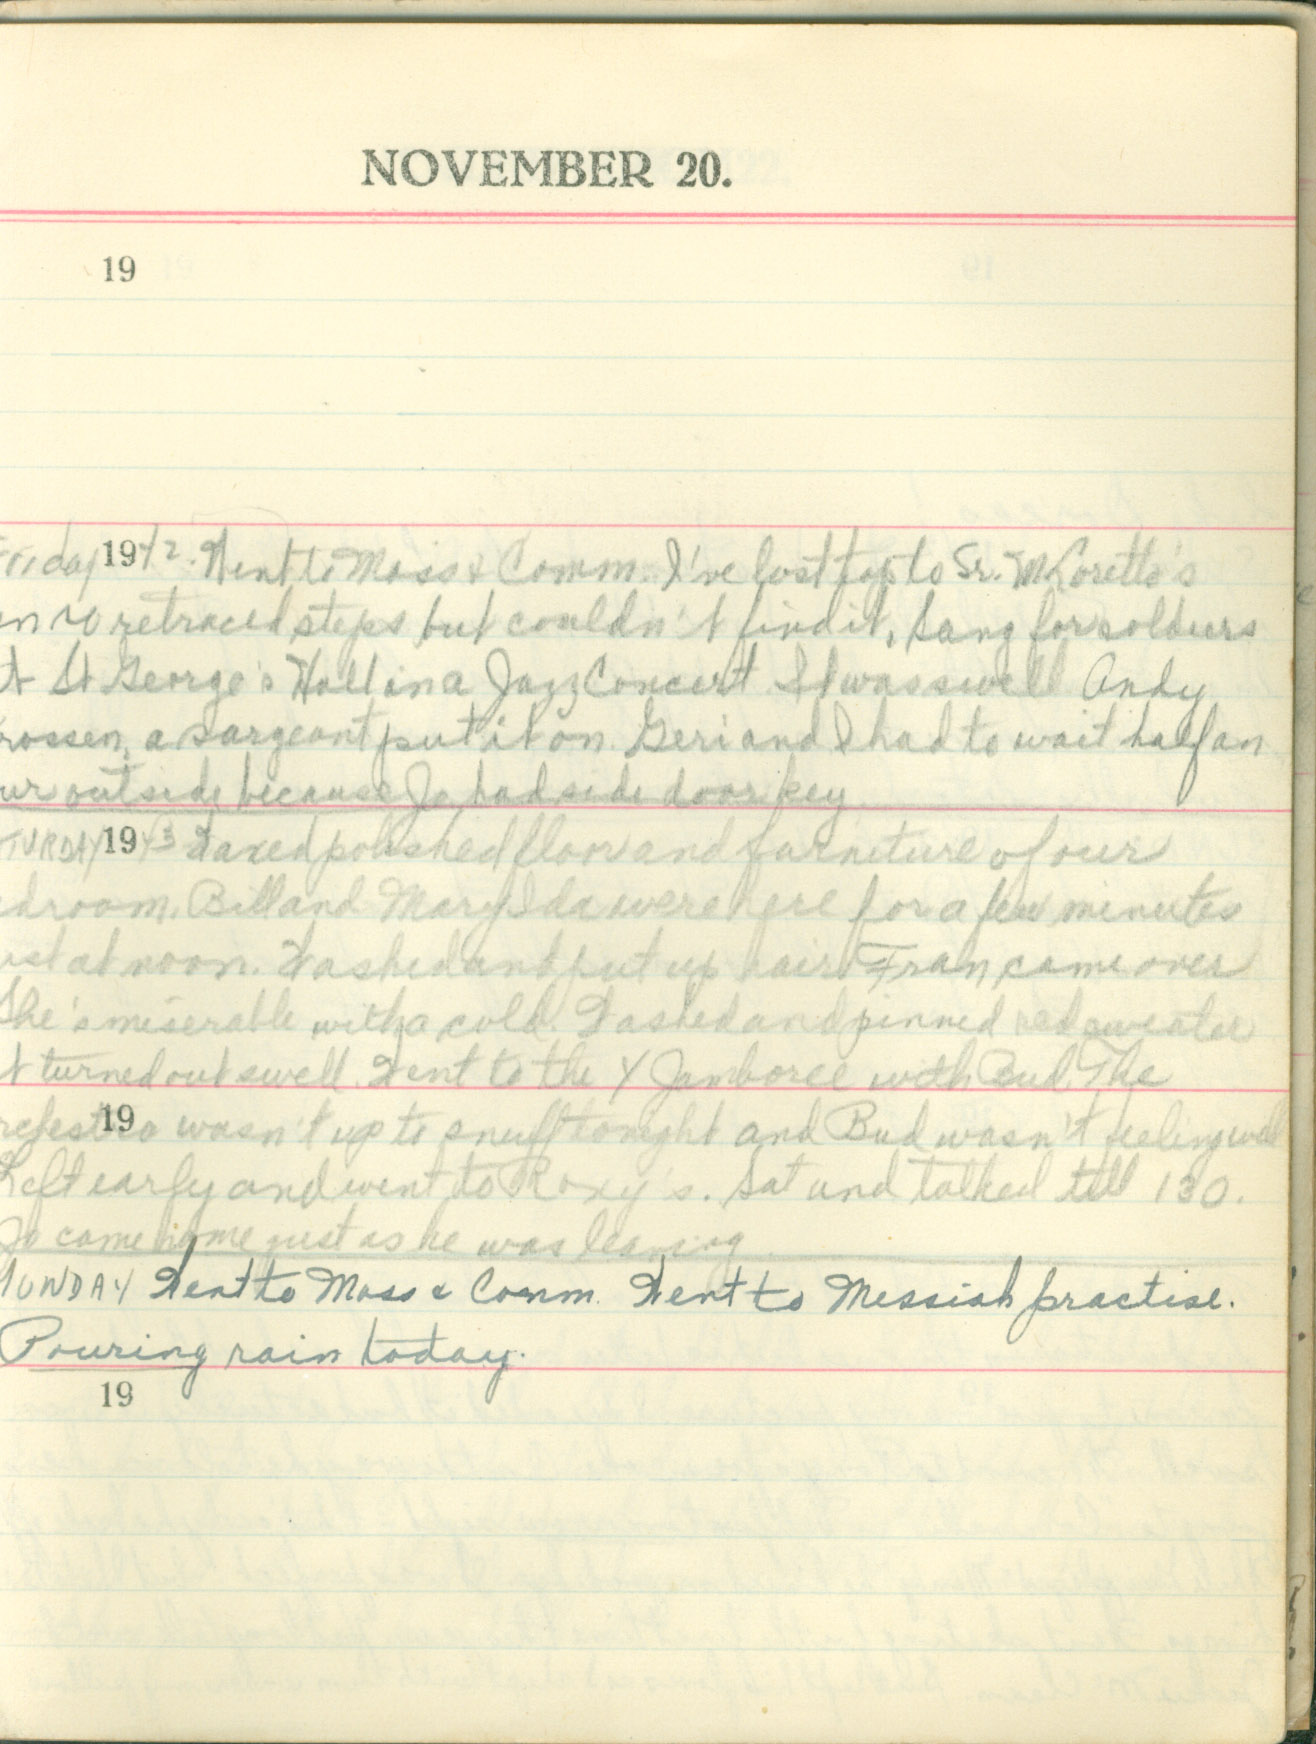 NOVEMBER 20.
19
Friday 1942. Went to Mass & Comm. I've lost top to Sr. M. Loretto's
retraced steps but couldn't find it. Sang for soldiers
St George's Hall in a Jazz Concert It was swell Andy
rossen, a sargeant put it on. Geri and I had to wait half an
ur outside because Jo had side door key
TURDAY 1943 Waxed polished floor and furniture of our
droom. Bill and Mary Ida were here for a few minutes
ust at noon. Washed and put up hair. Fran came over
She's miserable with a cold. Washed and pinned red sweater
It turned out swell. Went to the Y Jamboree with Bud. The
19
wasn't up to snuff tonight and Bud wasn't feeling well
Left early and went to Roxy's. Sat and talked till 130.
Jo came home just as he was leaving
SUNDAY Went to Mass & Comm. Went to Messiah practise.
Pouring rain today.
19